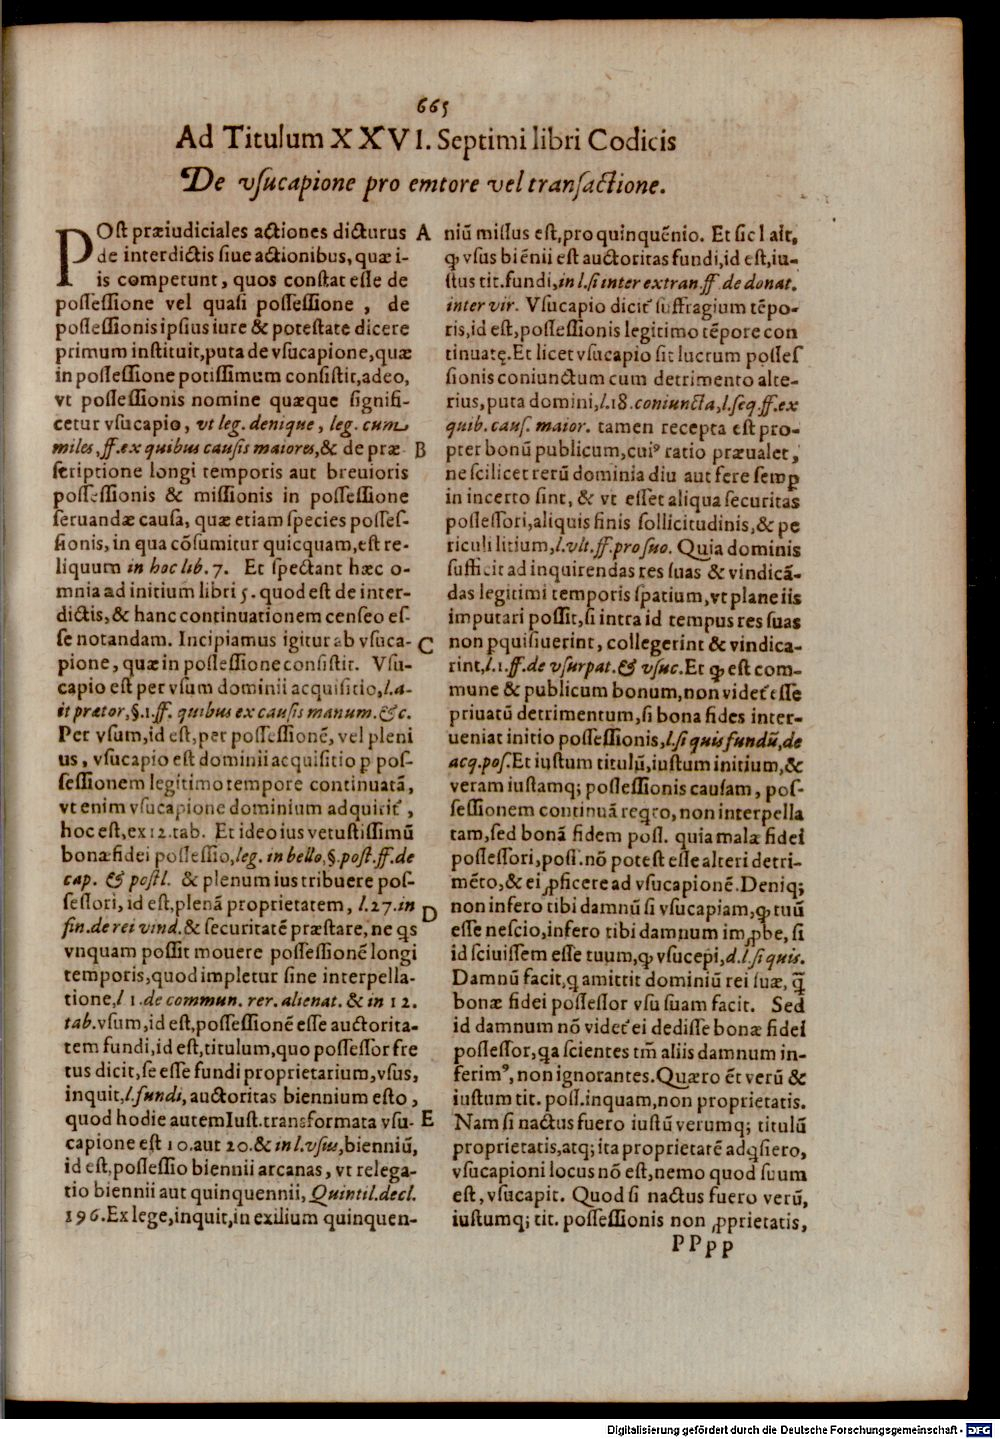 665
Ad Titulum XXVI. Septimi libri Codicis
De vſucapione pro emtore vel tranſactione.
POſt præiudiciales actiones dicturus
de interdictis ſiue actionibus, quæ i-
is competunt, quos conſtat eſſe de
poſſeſſione vel quaſi poſſeſſione, de
poſſeſſionis ipſius iure & poteſtate dicere
primum inſtituit, puta de vſucapione, quæ
in poſſeſſione potiſſimum conſiſtit, adeo,
vt poſſeſſionis nomine quæque ſignifi-
cetur vſucapio, vt leg. denique, leg. cum
miles, ff. ex quibus cauſis maiores, & de præ
ſcriptione longi temporis aut breuioris
poſſeſſionis & miſſionis in poſſeſſione
ſeruandæ cauſa, quæ etiam ſpecies poſſeſ-
ſionis, in qua cōſumitur quicquam, eſt re-
liquum in hoc lib. 7. Et ſpectant hæc o-
mnia ad initium libri 5. quod eſt de inter-
dictis, & hanc continuationem cenſeo eſ-
ſe notandam. Incipiamus igitur ab vſuca-
pione, quæ in poſſeſſione conſiſtit. Vſu-
capio eſt per vſum dominii acquiſitio, l. a-
it prætor, §. 1. ff. quibus ex cauſis manum. &c.
Per vſum, id eſt, per poſſeſſionē, vel pleni
us, vſucapio eſt dominii acquiſitio p poſ-
ſeſſionem legitimo tempore continuatā,
vt enim vſucapione dominium adquirit̉,
hoc eſt, ex 12. tab. Et ideo ius vetuſtiſſimū
bonæ fidei poſſeſſio, leg. in bello, §. poſt. ff. de
cap. & poſtl. & plenum ius tribuere poſ-
ſeſſori, id eſt, plenā proprietatem, l. 27. in
fin. de rei vind. & ſecuritatē præſtare, ne qs
vnquam poſſit mouere poſſeſſionē longi
temporis, quod impletur ſine interpella-
tione, l 1. de commun. rer. alienat. & in 12.
tab. vſum, id eſt, poſſeſſionē eſſe auctorita-
tem fundi, id eſt, titulum, quo poſſeſſor fre
tus dicit, ſe eſſe fundi proprietarium, vſus,
inquit, l. fundi, auctoritas biennium eſto,
quod hodie autem Iuſt. transformata vſu-
capione eſt 10. aut 20. & in l. vſus, bienniū,
id eſt, poſſeſſio biennii arcanas, vt relega-
tio biennii aut quinquennii, Quintil. decl.
196. Ex lege, inquit, in exilium quinquen-
A
B
C
D
E
niū miſſus eſt, pro quinquēnio. Et ſic l ait,
ꝙ vſus biēnii eſt auctoritas fundi, id eſt, iu-
ſtus tit. fundi, in l. ſi inter extran. ff. de donat.
inter vir. Vſucapio dicit̉ ſuffragium tēpo-
ris, id eſt, poſſeſſionis legitimo tēpore con
tinuatę. Et licet vſucapio ſit lucrum poſſeſ
ſionis coniunctum cum detrimento alte-
rius, puta domini, l. 18. coniuncta, l. ſeq. ff. ex
quib. cauſ. maior. tamen recepta eſt pro-
pter bonū publicum, cuiꝰ ratio præualet,
ne ſcilicet rerū dominia diu aut fere ſemp
in incerto ſint, & vt eſſet aliqua ſecuritas
poſſeſſori, aliquis finis ſollicitudinis, & pe
riculi litium, l. vlt. ff. pro ſuo. Quia dominis
ſufficit ad inquirendas res ſuas & vindicā-
das legitimi temporis ſpatium, vt plane iis
imputari poſſit, ſi intra id tempus res ſuas
non pquiſiuerint, collegerint & vindica-
rint, l. 1. ff. de vſurpat. & vſuc. Et ꝙ eſt com-
mune & publicum bonum, non videt̉ eſſe
priuatū detrimentum, ſi bona fides inter-
ueniat initio poſſeſſionis, l. ſi quis fundū, de
acq. poſ. Et iuſtum titulū, iuſtum initium, &
veram iuſtamq; poſſeſſionis cauſam, poſ-
ſeſſionem continuā reqro, non interpella
tam, ſed bonā fidem poſſ. quia malæ fidei
poſſeſſori, poſſ. nō poteſt eſſe alteri detri-
mēto, & ei ꝓficere ad vſucapionē. Deniq;
non infero tibi damnū ſi vſucapiam, ꝙ tuū
eſſe neſcio, infero tibi damnum imꝓbe, ſi
id ſciuiſſem eſſe tuum, ꝙ vſucepi, d. l. ſi quis.
Damnū facit, q amittit dominiū rei ſuæ, q̄
bonæ fidei poſſeſſor vſu ſuam facit. Sed
id damnum nō videt̉ ei dediſſe bonæ fidei
poſſeſſor, qa ſcientes tm̄ aliis damnum in-
ferimꝰ, non ignorantes. Quæro ēt verū &
iuſtum tit. poſſ. inquam, non proprietatis.
Nam ſi nactus fuero iuſtū verumq; titulū
proprietatis, atq; ita proprietatē adqſiero,
vſucapioni locus nō eſt, nemo quod ſuum
eſt, vſucapit. Quod ſi nactus fuero verū,
iuſtumq; tit. poſſeſſionis non ꝓprietatis,
PPpp
Digitalisierung gefördert durch die Deutsche Forschungsgemeinschaft - DFG